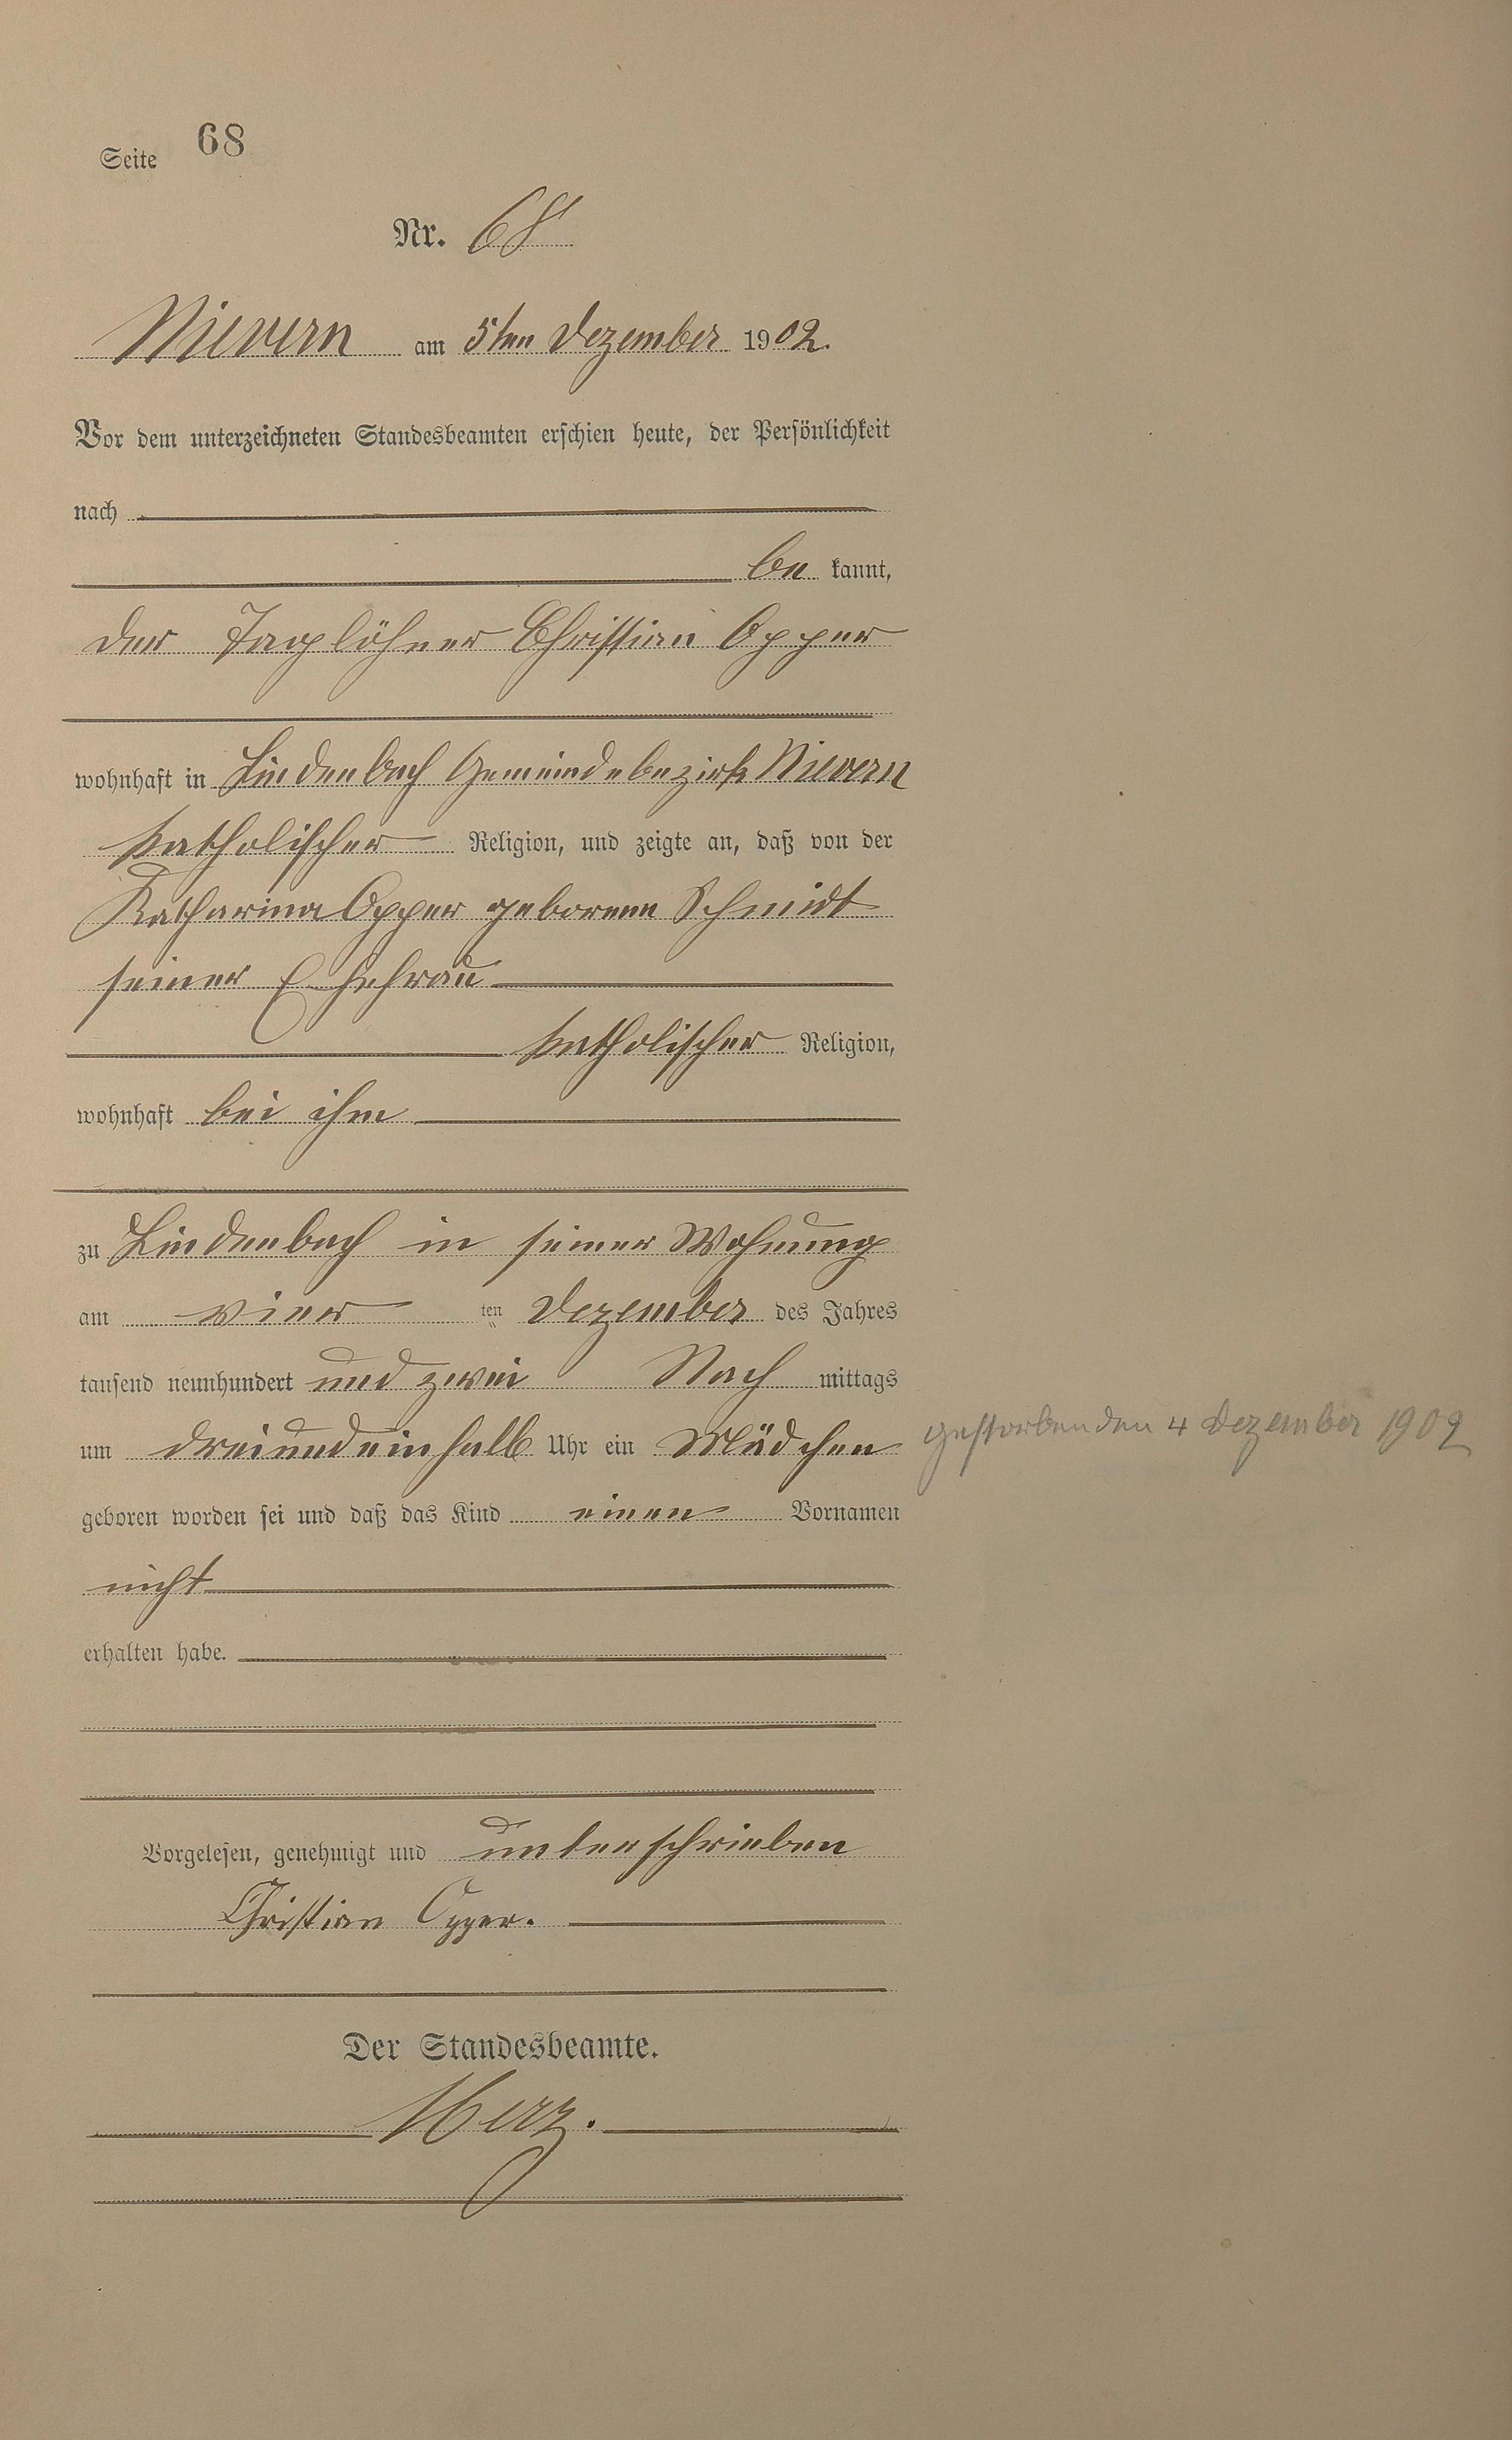 Seite 68
Nr. 68
Nievern am 5ten Dezember 1902.
Vor dem unterzeichneten Standesbeamten erschien heute, der Persönlichkeit
nach
be kannt,
der Taglöhner Christian Opper
wohnhaft in Lindenbach Gemeindebezirk Nievern
katholischer Religion, und zeigte an, daß von der
Katharina Opper geborene Schmidt
seiner Ehefrau
katholischer Religion,
wohnhaft bei ihm
zu Lindenbach in seiner Wohnung
am vier ten Dezember des Jahres
tausend neunhundert und zwei Nach mittags
um dreiundeinhalb Uhr ein Mädchen
gestorben den 4 Dezember 1902
geboren worden sei und daß das Kind einen Vornamen
nicht
erhalten habe.
Vorgelesen, genehmigt und unterschrieben
Christian Opper.
Der Standesbeamte.
Herz.